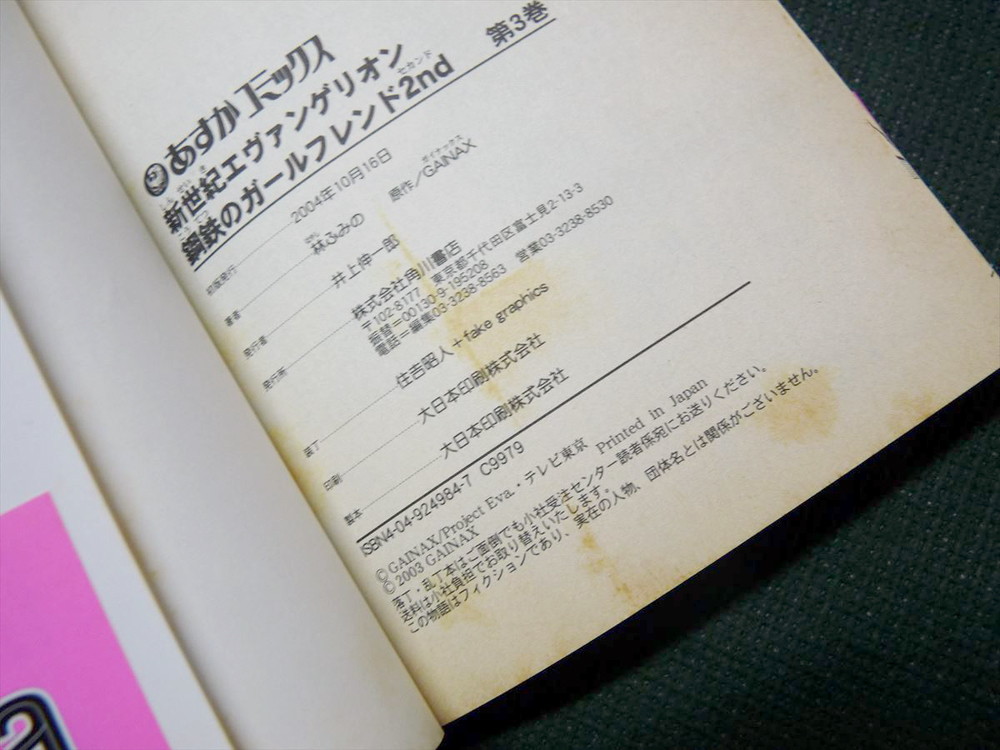 あすかコミックス
しんせいき
新世紀エヴァンゲリオン
セカンド
鋼鉄のガールフレンド2nd 第3巻
初版発行 2004年10月16日
著者 林ふみの 原作/GAINAX
はやし ガイナックス
発行者 井上伸一郎
発行所 株式会社角川書店
〒102-8177 東京都千代田区富士見2-13-3
振替=00130-9-195208
電話=編集03-3238-8563 営業03-3238-8530
装丁 住吉昭人+fake graphics
印刷 大日本印刷株式会社
製本 大日本印刷株式会社
ISBN4-04-924984-7 C9979
©GAINAX/Project Eva.・テレビ東京 Printed in Japan
©2003 GAINAX
落丁・乱丁本はご面倒でも小社受注センター読者係宛にお送りください。
送料は小社負担でお取り替えいたします。
この物語はフィクションであり、実在の人物、団体名とは関係がございません。